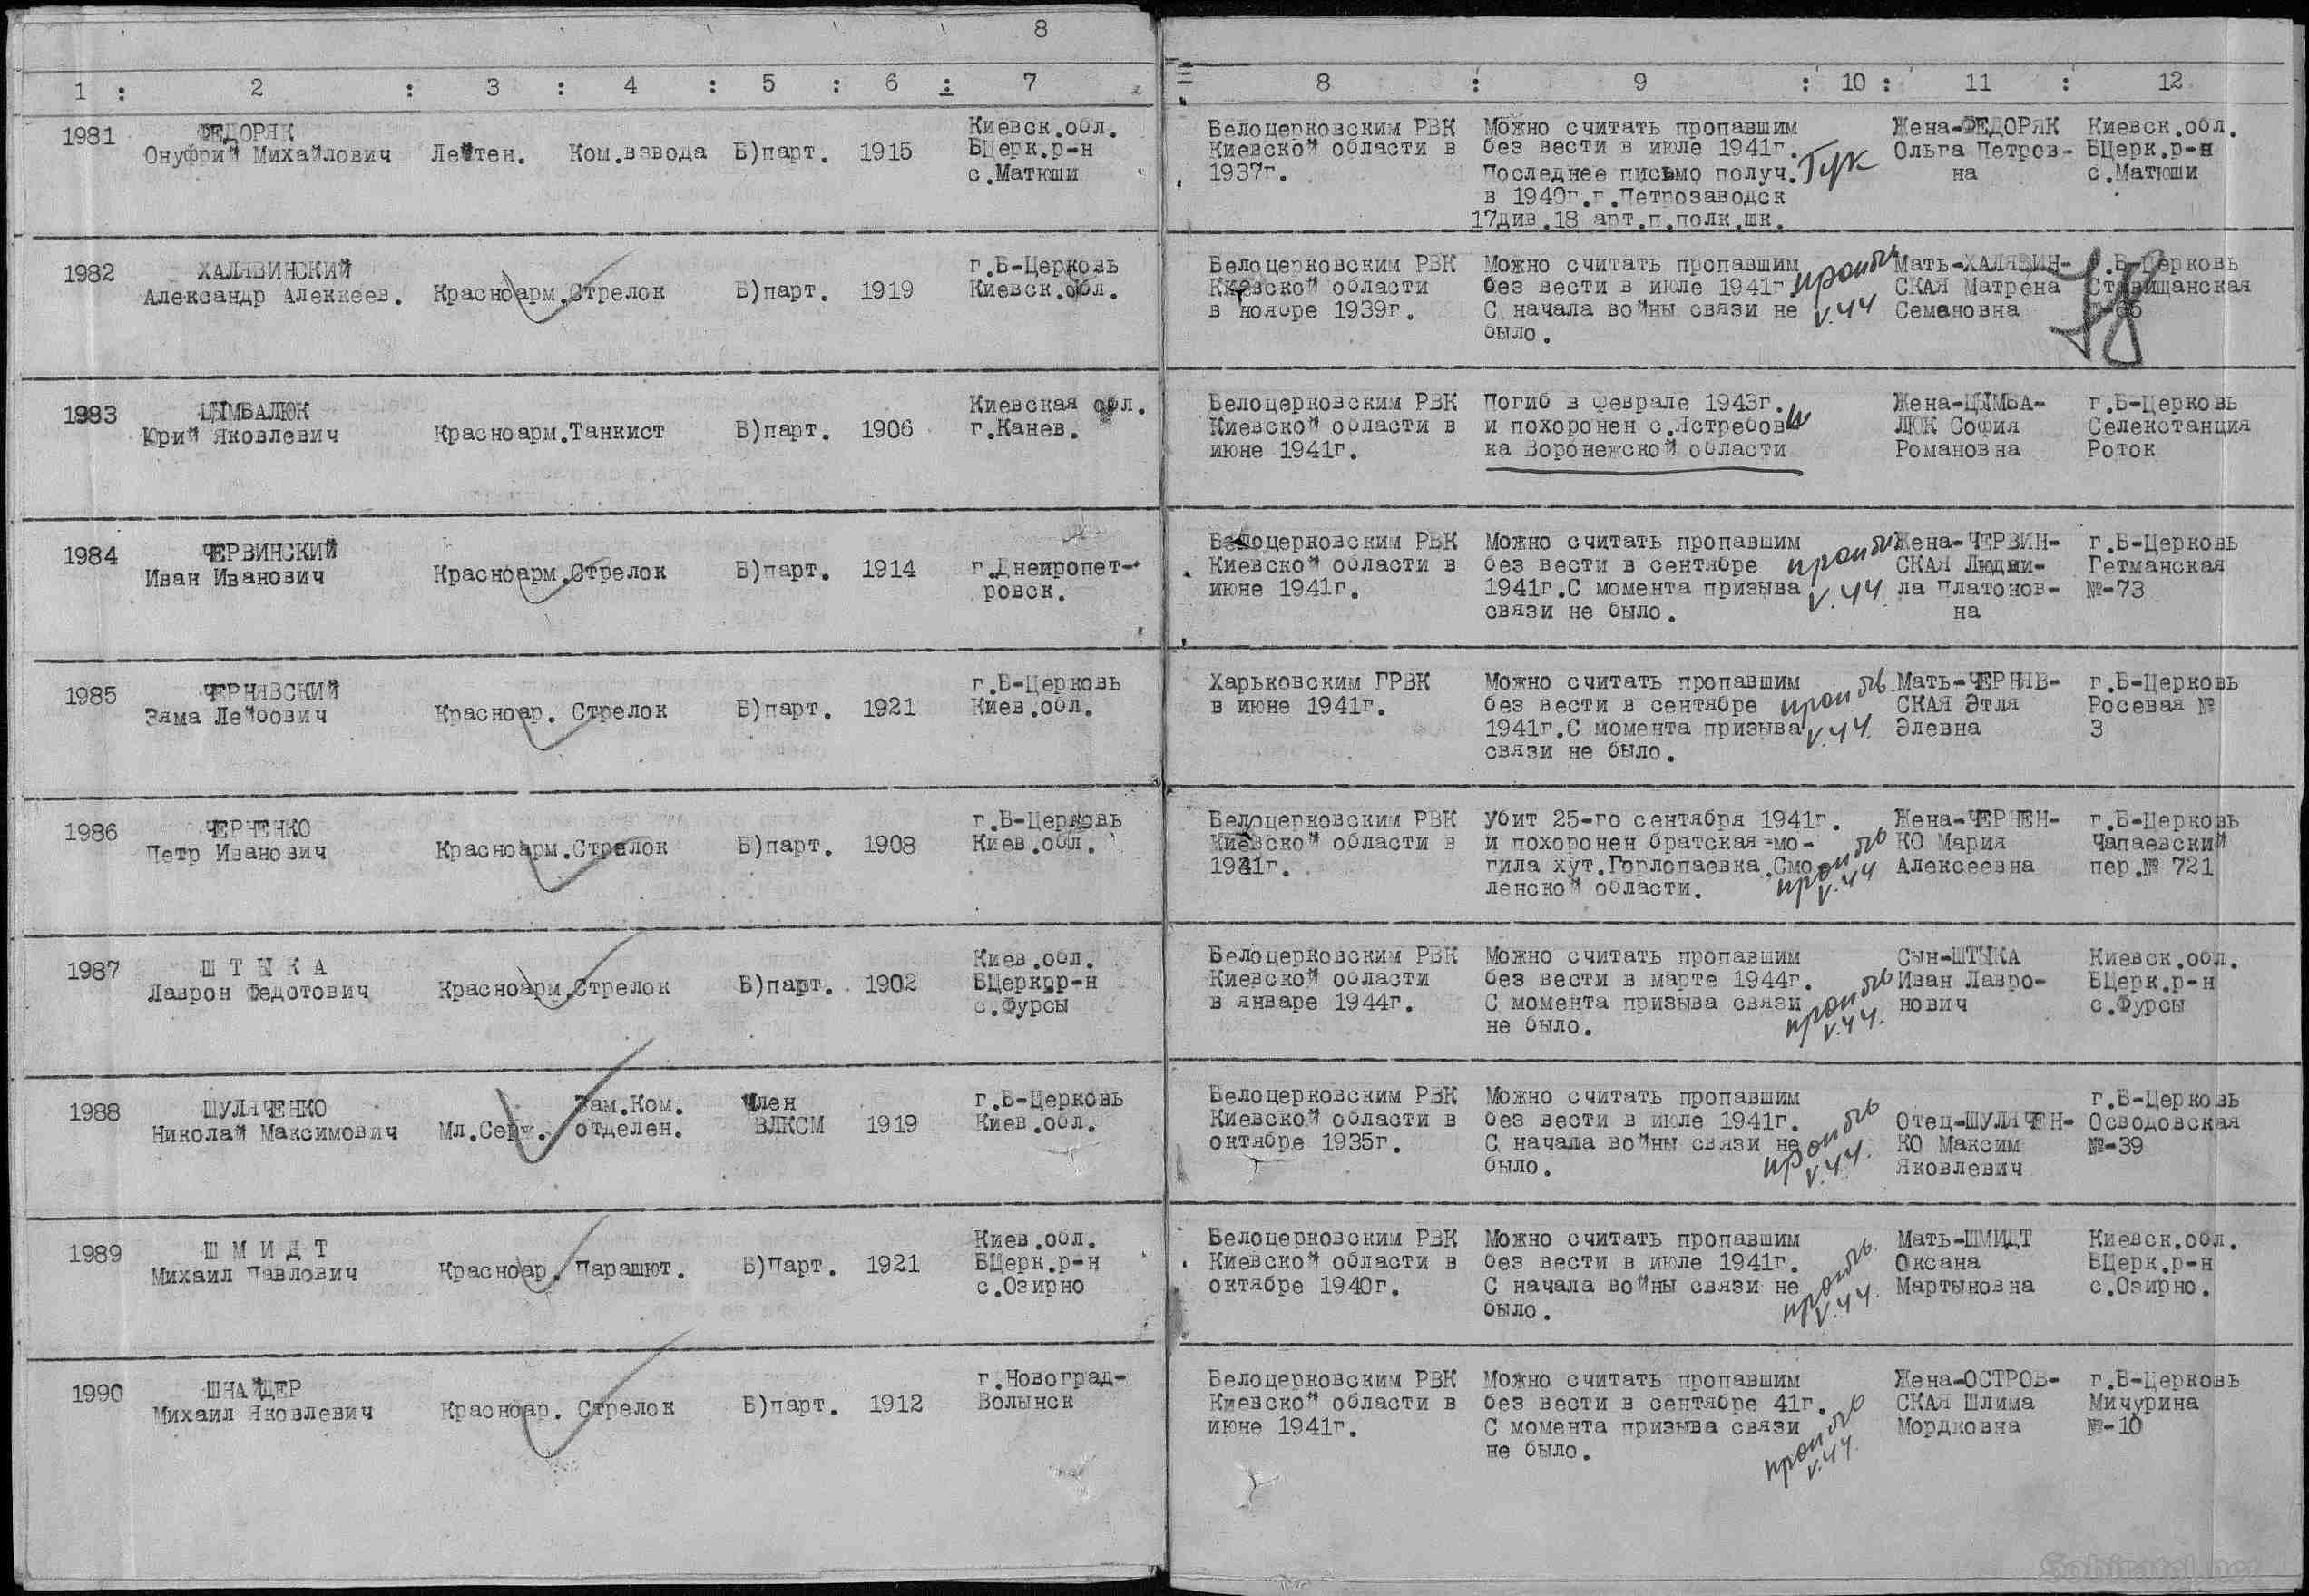 8
1 : 2 : 3 : 4 : 5 : 6 : 7
8 : 9 : 10 : 11 : 12
1981
ФЕДОРЯК
Онуфрий Михайлович
Лейтен.
Ком.взвода
Б)парт.
1915
Киевск.обл.
БЦерк.р-н
с.Матюши
Белоцерковским РВК
Киевской области в
1937г.
Можно считать пропавшим
без вести в июле 1941г.
Последнее письмо получ.
в 1940г.г.Петрозаводск
17див.18 арт.п.полк.шк.
Жена-ФЕДОРЯК
Ольга Петров-
на
Киевск.обл.
БЦерк.р-н
с.Матюши
1982
ХАЛЯВИНСКИЙ
Александр Алексеев.
Красноарм.
Стрелок
Б)парт.
1919
г.Б-Церковь
Киевск.обл.
Белоцерковским РВК
Киевской области
в ноябре 1939г.
Можно считать пропавшим
без вести в июле 1941г.
С начала войны связи не
было.
V.44
Мать-ХАЛЯВИН-
СКАЯ Матрена
Семановна
г.Б-Церковь
Ставищанская
1983
ЦЫМБАЛЮК
Юрий Яковлевич
Красноарм.
Танкист
Б)парт.
1906
Киевская обл.
г.Канев.
Белоцерковским РВК
Киевской области в
июне 1941г.
Погиб в феврале 1943г.
и похоронен с.Ястребов
ка Воронежской области
Жена-ЦЫМБА-
ЛЮК София
Романовна
г.Б-Церковь
Селекстанция
Роток
1984
ЧЕРВИНСКИЙ
Иван Иванович
Красноарм.
Стрелок
Б)парт.
1914
г.Днепропет-
ровск.
Белоцерковским РВК
Киевской области в
июне 1941г.
Можно считать пропавшим
без вести в сентябре
1941г.С момента призыва
связи не было.
V.44
Жена-ЧЕРВИН-
СКАЯ Людми-
ла Платонов-
на
г.Б-Церковь
Гетманская
№-73
1985
ЧЕРНЯВСКИЙ
Зяма Лейбович
Красноар.
Стрелок
Б)парт.
1921
г.Б-Церковь
Киев.обл.
Харьковским ГРВК
в июне 1941г.
Можно считать пропавшим
без вести в сентябре
1941г.С момента призыва
связи не было.
V.44
Мать-ЧЕРНЯВ-
СКАЯ Этля
Элевна
г.Б-Церковь
Росевая №
3
1986
ЧЕРНЕНКО
Петр Иванович
Красноарм.
Стрелок
Б)парт.
1908
г.Б-Церковь
Киев.обл.
Белоцерковским РВК
Киевской области в
1941г.
Убит 25-го сентября 1941г.
и похоронен братская-мо-
гила хут.Горлопаевка.Смо-
ленской области.
V.44
Жена-ЧЕРНЕН-
КО Мария
Алексеевна
г.Б-Церковь
Чапаевский
пер.№ 721
1987
Ш Т Ы К А
Лаврон Федотович
Красноарм.
Стрелок
Б)парт.
1902
Киев.обл.
БЦеркрр-н
с.Фурсы
Белоцерковским РВК
Киевской области
в январе 1944г.
Можно считать пропавшим
без вести в марте 1944г.
С момента призыва связи
не было.
V.44.
Сын-ШТЫКА
Иван Лавро-
нович
Киевск.обл.
БЦерк.р-н
с.Фурсы
1988
ШУЛЯЧЕНКО
Николай Максимович
Мл.Серж.
Зам.Ком.
отделен.
Член
ВЛКСМ
1919
г.Б-Церковь
Киев.обл.
Белоцерковским РВК
Киевской области в
октябре 1935г.
Можно считать пропавшим
без вести в июле 1941г.
С начала войны связи не
было.
V.44.
Отец-ШУЛЯЧЕН-
КО Максим
Яковлевич
г.Б-Церковь
Осводовская
№-39
1989
Ш М И Д Т
Михаил Павлович
Красноар.
Парашют.
Б)Парт.
1921
Киев.обл.
БЦерк.р-н
с.Озирно
Белоцерковским РВК
Киевской области в
октябре 1940г.
Можно считать пропавшим
без вести в июле 1941г.
С начала войны связи не
было.
V.44.
Мать-ШМИДТ
Оксана
Мартыновна
Киевск.обл.
БЦерк.р-н
с.Озирно.
1990
ШНАЙДЕР
Михаил Яковлевич
Красноар.
Стрелок
Б)парт.
1912
г.Новоград-
Волынск
Белоцерковским РВК
Киевской области в
июне 1941г.
Можно считать пропавшим
без вести в сентябре 41г.
С момента призыва связи
не было.
V.44.
Жена-ОСТРОВ-
СКАЯ Шлима
Мордковна
г.Б-Церковь
Мичурина
№-10